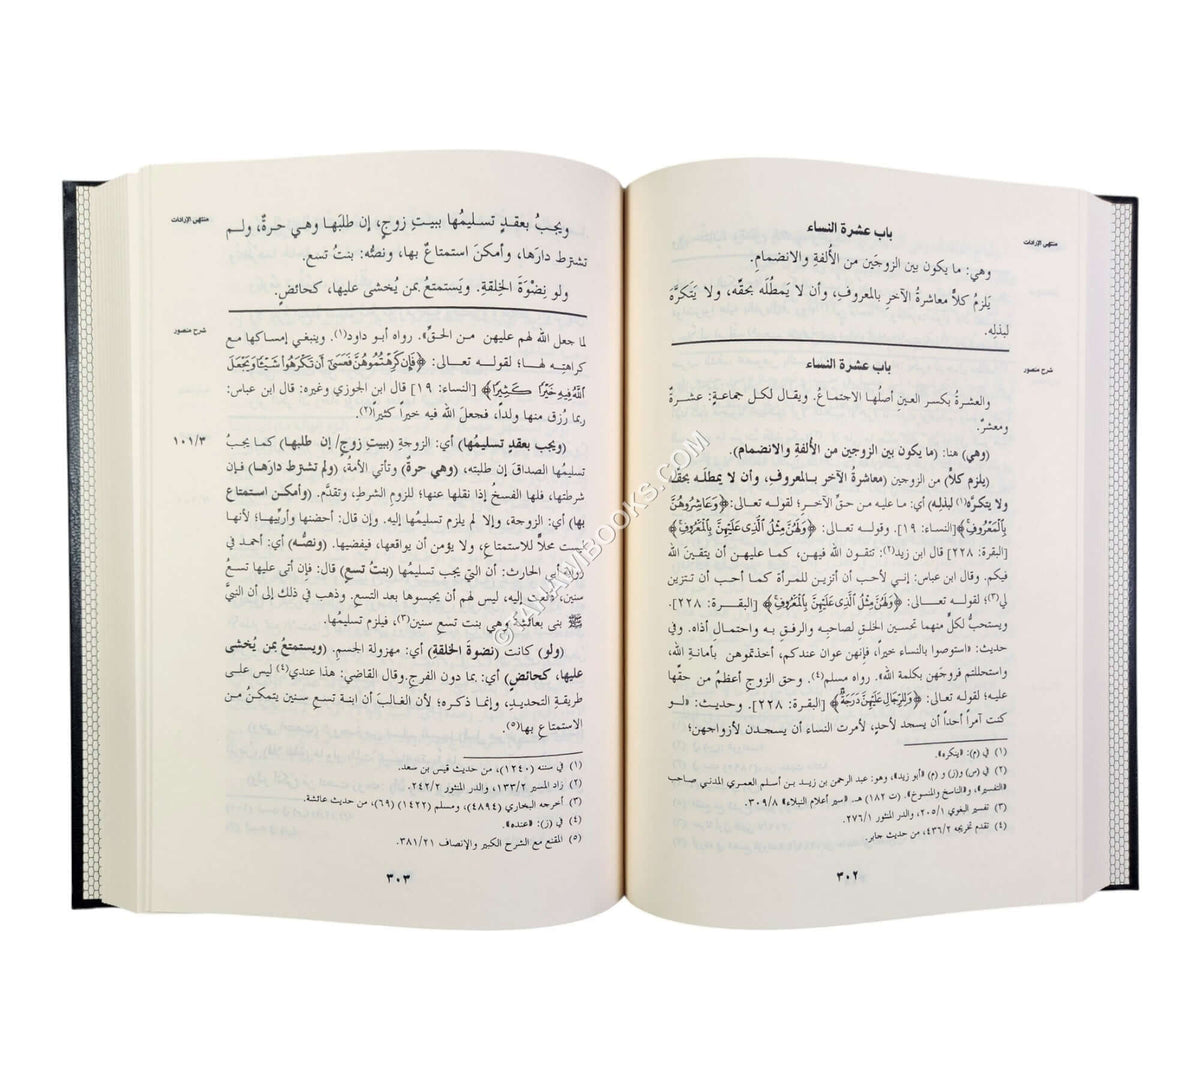 باب عشرة النساء
منتهى الإرادات
وهي: ما يكون بين الزوجَين من الأُلفةِ والانضمامِ.
يَلزم كلاًّ معاشرةُ الآخرِ بالمعروفِ، وأن لا يَمطلَه بحقِّه، ولا يَتكرَّه
لبذلِه.
باب عشرة النساء
شرح منصور
والعشرةُ بكسر العينِ أصلُها الاجتماعُ. ويقال لكل جماعةٍ: عشرةٌ
ومعشرٌ.
(وهي) هنا: (ما يكون بين الزوجين من الأُلفةِ والانضمام).
(يلزم كلاًّ) من الزوجين (معاشرةُ الآخر بالمعروفِ، وأن لا يمطلَه بحقِّه
ولا يتكرَّه(١) لبذلِه) أي: ما عليه من حقِّ الآخرِ؛ لقوله تعالى: ﴿وَعَاشِرُوهُنَّ
بِالْمَعْرُوفِ﴾[النساء: ١٩]. وقوله تعالى: ﴿وَلَهُنَّ مِثْلُ الَّذِي عَلَيْهِنَّ بِالْمَعْرُوفِ﴾
[البقرة: ٢٢٨] قال ابن زيد(٢): تتقون الله فيهن، كما عليهن أن يتقينَ الله
فيكم. وقال ابن عباس: إني لأحب أن أتزين للمرأة كما أحب أن تتزين
لي(٣)؛ لقوله تعالى: ﴿وَلَهُنَّ مِثْلُ الَّذِي عَلَيْهِنَّ بِالْمَعْرُوفِ﴾ [البقرة: ٢٢٨].
ويستحبُّ لكلٍّ منهما تحسين الخلقِ لصاحبِه والرفق به واحتمال أذاه. وفي
حديث: «استوصوا بالنساء خيراً، فإنهن عوان عندكم، أخذتموهن بأمانةِ الله،
واستحللتم فروجَهن بكلمة الله». رواه مسلم(٤). وحق الزوجِ أعظمُ من حقِّها
عليه؛ لقوله تعالى: ﴿وَلِلرِّجَالِ عَلَيْهِنَّ دَرَجَةٌ﴾ [البقرة: ٢٢٨]. وحديث: «لو
كنت آمراً أحداً أن يسجد لأحدٍ، لأمرت النساء أن يسجدن لأزواجهن؛
(١) في (م): «ينكره».
(٢) في (س) و(ز) و (م): «أبو زيد»، وهو: عبد الرحمن بن زيد بن أسلم العمري المدني صاحب
«التفسير»، و«الناسخ والمنسوخ». (ت ١٨٢ هـ). «سير أعلام النبلاء» ٣٠٩/٨.
(٣) تفسير البغوي ٢٠٥/١، والدر المنثور ٢٧٦/١.
(٤) تقدم تخريجه ٤٣٦/٢، من حديث جابر.
٣٠٢
منتهى الإرادات
ويجبُ بعقدٍ تسليمُها ببيتِ زوجٍ، إن طلبَها وهي حرةٌ، ولم
تشترط دارَها، وأمكنَ استمتاعٌ بها، ونصُّه: بنتُ تسع.
ولو نِضْوَةَ الخِلقةِ. ويَستمتعُ بمن يُخشى عليها، كحائضٍ.
شرح منصور
لما جعل الله لهم عليهن من الحقِّ». رواه أبو داود(١). وينبغي إمساكها مع
كراهتِه لها؛ لقوله تعالى: ﴿فَإِن كَرِهْتُمُوهُنَّ فَعَسَى أَن تَكْرَهُوا شَيْئًا وَيَجْعَلَ
اللَّهُ فِيهِ خَيْرًا كَثِيرًا﴾ [النساء: ١٩] قال ابن الجوزي وغيره: قال ابن عباس:
ربما رُزق منها ولداً، فجعلَ الله فيه خيراً كثيراً(٢).
١٠١/٣
(ويجب بعقدٍ تسليمُها) أي: الزوجةِ (ببيتِ زوجٍ/ إن طلبها) كما يجبُ
تسليمُها الصداقَ إن طلبته، (وهي حرةٌ) وتأتي الأمةُ، (ولم تشترط دارَها) فإن
شرطتها، فلها الفسخُ إذا نقلها عنها؛ للزومِ الشرطِ، وتقدَّم. (وأمكن استمتاع
بها) أي: الزوجة، وإلا لم يلزم تسليمُها إليه. وإن قال: أحضنها وأربِّيها؛ لأنها
ليست محلاًّ للاستمتاعِ، ولا يؤمن أن يواقعَها، فيفضيها. (ونصُّه) أي: أحمد في
رواية أبي الحارث: أن التي يجب تسليمُها (بنتُ تسعٍ) قال: فإن أتى عليها تسعُ
سنين، دُفعت إليه، ليس لهم أن يحبسوها بعد التسع. وذهب في ذلك إلى أن النبيَّ
ﷺ بنى بعائشةَ وهي بنت تسع سنين(٣)، فيلزم تسليمُها.
(ولو) كانت (نضوةَ الخلقةِ) أي: مهزولة الجسمِ. (ويستمتعُ بمن يُخشى
عليها، كحائضٍ) أي: بما دون الفرجِ. وقال القاضي: هذا عندي(٤) ليس على
طريقةِ التحديدِ، وإنما ذكره؛ لأن الغالبَ أن ابنة تسع سنين يتمكنُ من
الاستمتاعِ بها(٥).
(١) في سننه (١٢٤٠)، من حديث قيس بن سعد.
(٢) زاد المسير ١٣٣/٢، والدر المنثور ٢٤٢/٢.
(٣) أخرجه البخاري (٤٨٩٤)، ومسلم (١٤٢٢) (٦٩)، من حديث عائشة.
(٤) في (ز): «عنده».
(٥) المقنع مع الشرح الكبير والإنصاف ٣٨١/٢١.
٣٠٣